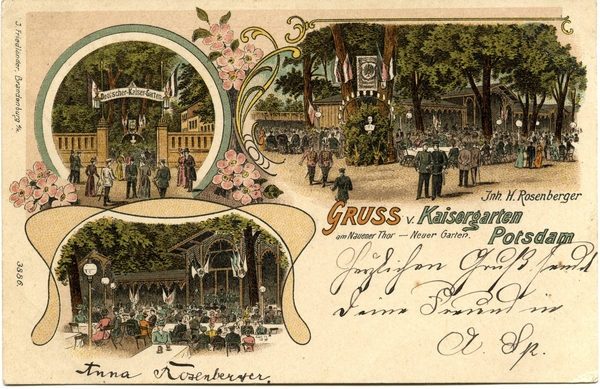 J. Friedländer, Brandenburg a/H.
3886.
Deutscher-Kaiser-Garten
Inh. H. Rosenberger
GRUSS v. Kaisergarten
am Nauener Thor — Neuer Garten.
Potsdam
Herzlichen Gruß sendt
Deine Freundin
A. Sp.
Anna Rosenberger.